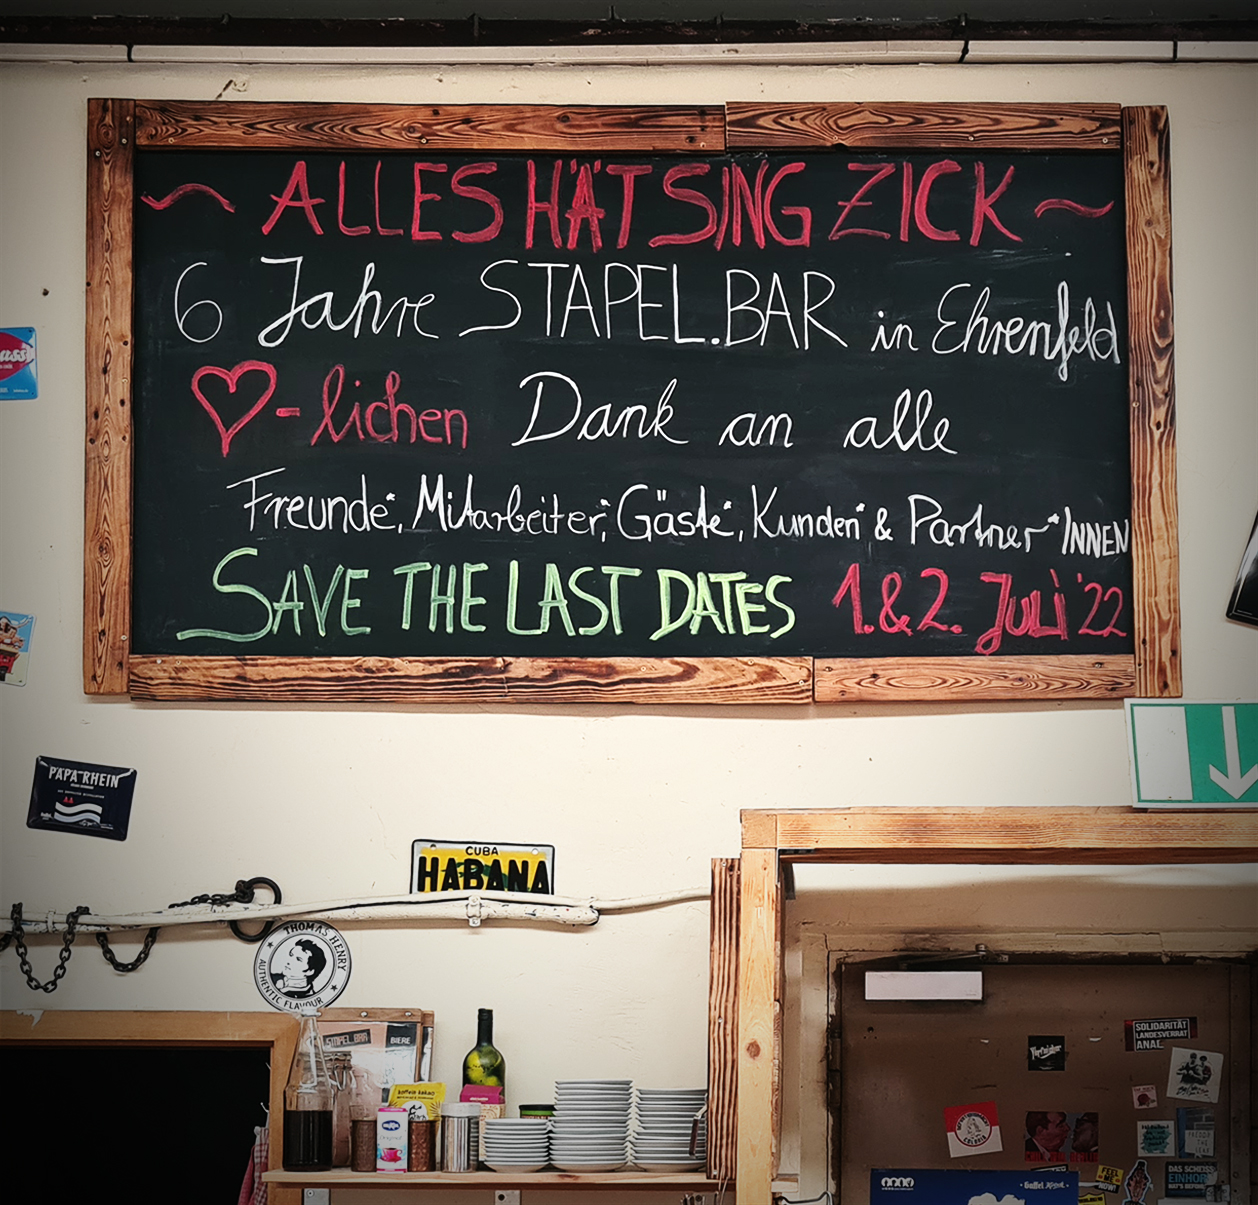 ~ ALLES HÄT SING ZICK ~
6 Jahre STAPEL.BAR in Ehrenfeld
♡-lichen Dank an alle
Freunde*, Mitarbeiter*, Gäste*, Kunden* & Partner*INNEN
SAVE THE LAST DATES 1.&2. JULI '22
PAPA RHEIN
CUBA
HABANA
THOMAS HENRY
AUTHENTIC FLAVOUR
BIERE
SOLIDARITÄT
LANDESVERRAT
COLONIA
FEEL
NOW!
DAS SCHÖSS
EINHOR
Gaffel